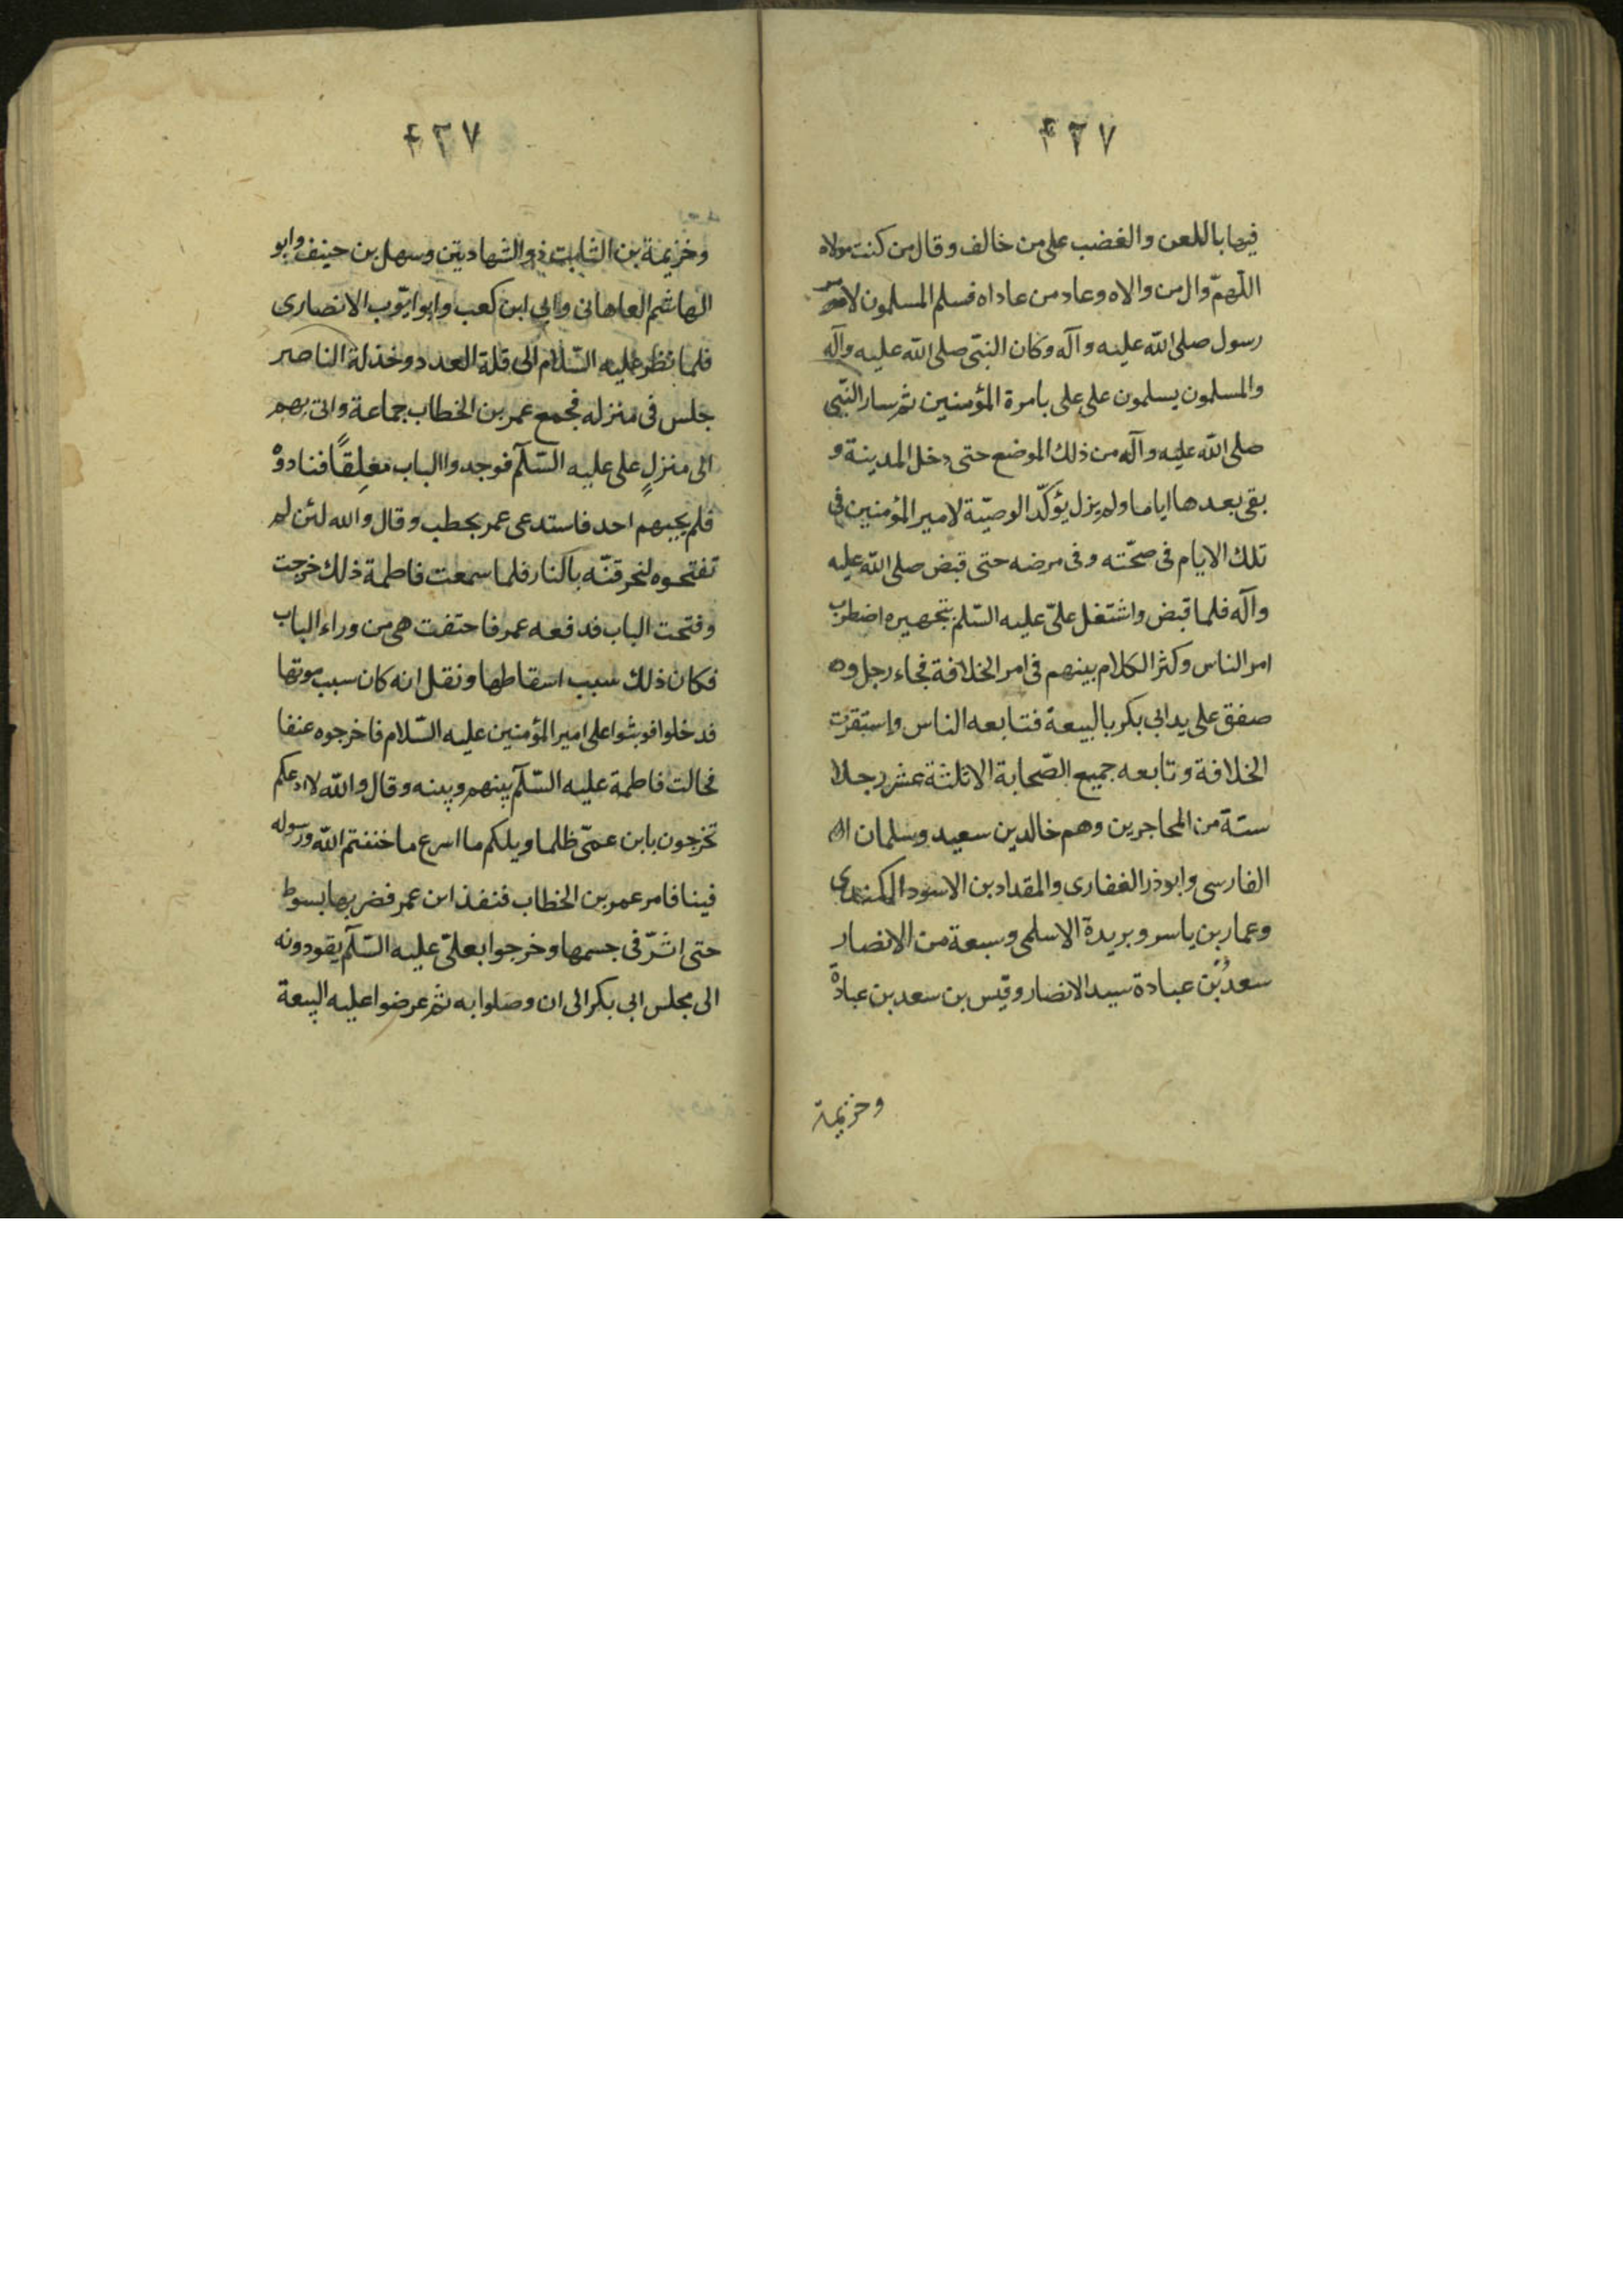 ٤٢٧
فيها باللعن والغضب على من خالف وقال من كنت مولاه
اللّهمّ وال من والاه وعاد من عاداه فسلم المسلمون لامر
رسول صلى الله عليه وآله وكان النبّى صلى الله عليه وآله
والمسلمون يسلمون على على بامرة المؤمنين ثم سار النبّى
صلى الله عليه وآله من ذلك الموضع حتى دخل المدينة و
بقى بعدها اياما ولم يزل يؤكّد الوصيّة لامير المؤمنين فى
تلك الايام فى صحّته وفى مرضه حتى قبض صلى الله عليه
وآله فلما قبض واشتغل علىّ عليه السّلم بتجهيره اضطرب
امر الناس وكثر الكلام بينهم فى امر الخلافة فجاء رجل و
صفق على يد ابى بكر بالبيعة فتابعه الناس واستقرت
الخلافة وتابعه جميع الصّحابة الا ثلثة عشر رجلا
ستة من المحاجرين وهم خالد بن سعيد وسلمان
الفارسى وابوذر الغفارى والمقداد بن الاسود الكندى
وعمار بن ياسر وبريدة الاسلمى وسبعة من الانصار
سعدُ بْن عبادة سيد الانصار وقيس بن سعد بن عبادة
وخزيمة
٤٢٧
وخزيمة بن الثابت ذو الشهادتين وسهل بن حنيف وابو
الهاشم العاهانى وابى ابن كعب وابو ايّوب الانصارى
فلما نظر عليه السّلام الى قلة العدد وخذلة الناصر
جلس فى منزله فجمع عمر بن الخطاب جماعة واتى بهم
الى منزلٍ على عليه السّلم فوجدوا الباب مغلِقًا فنادوْه
فلم يجبهم احد فاستدعى عمر بحطب وقال والله لئن لم
تفتحوه لنحرقنّه بالنار فلما سمعت فاطمة ذلك خرجت
وفتحت الباب فدفعه عمر فاحتفت هى من وراء الباب
فكان ذلك سبب اسقاطها ونقل انه كان سبب موتها
فدخلوا فوبثوا على امير المؤمنين عليه السّلام فاخرجوه عنفا
فحالت فاطمة عليه السّلم بينهم وبينه وقال والله لا ادعكم
تخرجون بابن عمّى ظلما ويلكم ما اسرع ما خنتم الله ورسوله
فينا فامر عمر بن الخطاب فنفذ ابن عمر فضربها بسوط
حتى اثّر فى جسمها وخرجوا بعلىّ عليه السّلم يقودونه
الى مجلس ابى بكر الى ان وصلوا به ثم عرضوا عليه البيعة